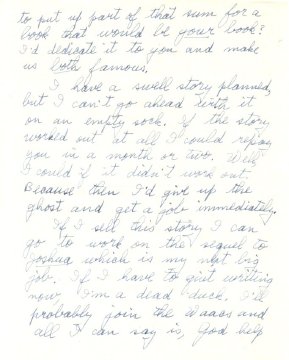 to put up part of that sum for a
book that would be your book?
I'd dedicate it to you and make
us both famous.
I have a swell story planned,
but I can't go ahead with it
on an empty sock. If the story
worked out at all I could repay
you in a month or two. Well
I could if it didn't work out.
Because then I'd give up the
ghost and get a job immediately.
If I sell this story I can
go to work on the sequel to
Joshua which is my next big
job. If I have to quit writing
now I'm a dead duck. I'll
probably join the Waacs and
all I can say is, God help